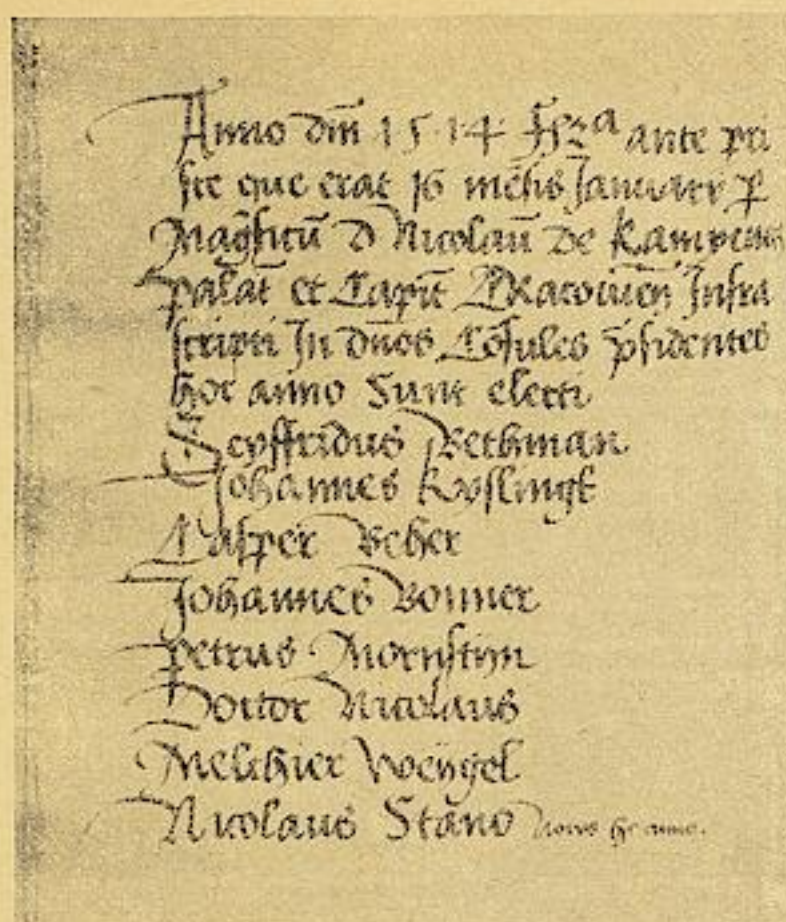 Anno dm̄ 1514 ffra ante pri
ste que erat 16 mēsis Januarii p
Magficū d Nicolaū de
palat̄ et Capit̄ Cracovieñ Infra
scripti In dnos Cōsules psidentes
hoc anno Sunt electi
Seyffridus Bethman
Johannes Kyslingk
Casper Beher
Johannes Bonner
Petrus Mornstyn
Doctor Nicolaus
Melchier Weygel
Nicolaus Stano Novus hoc anno.